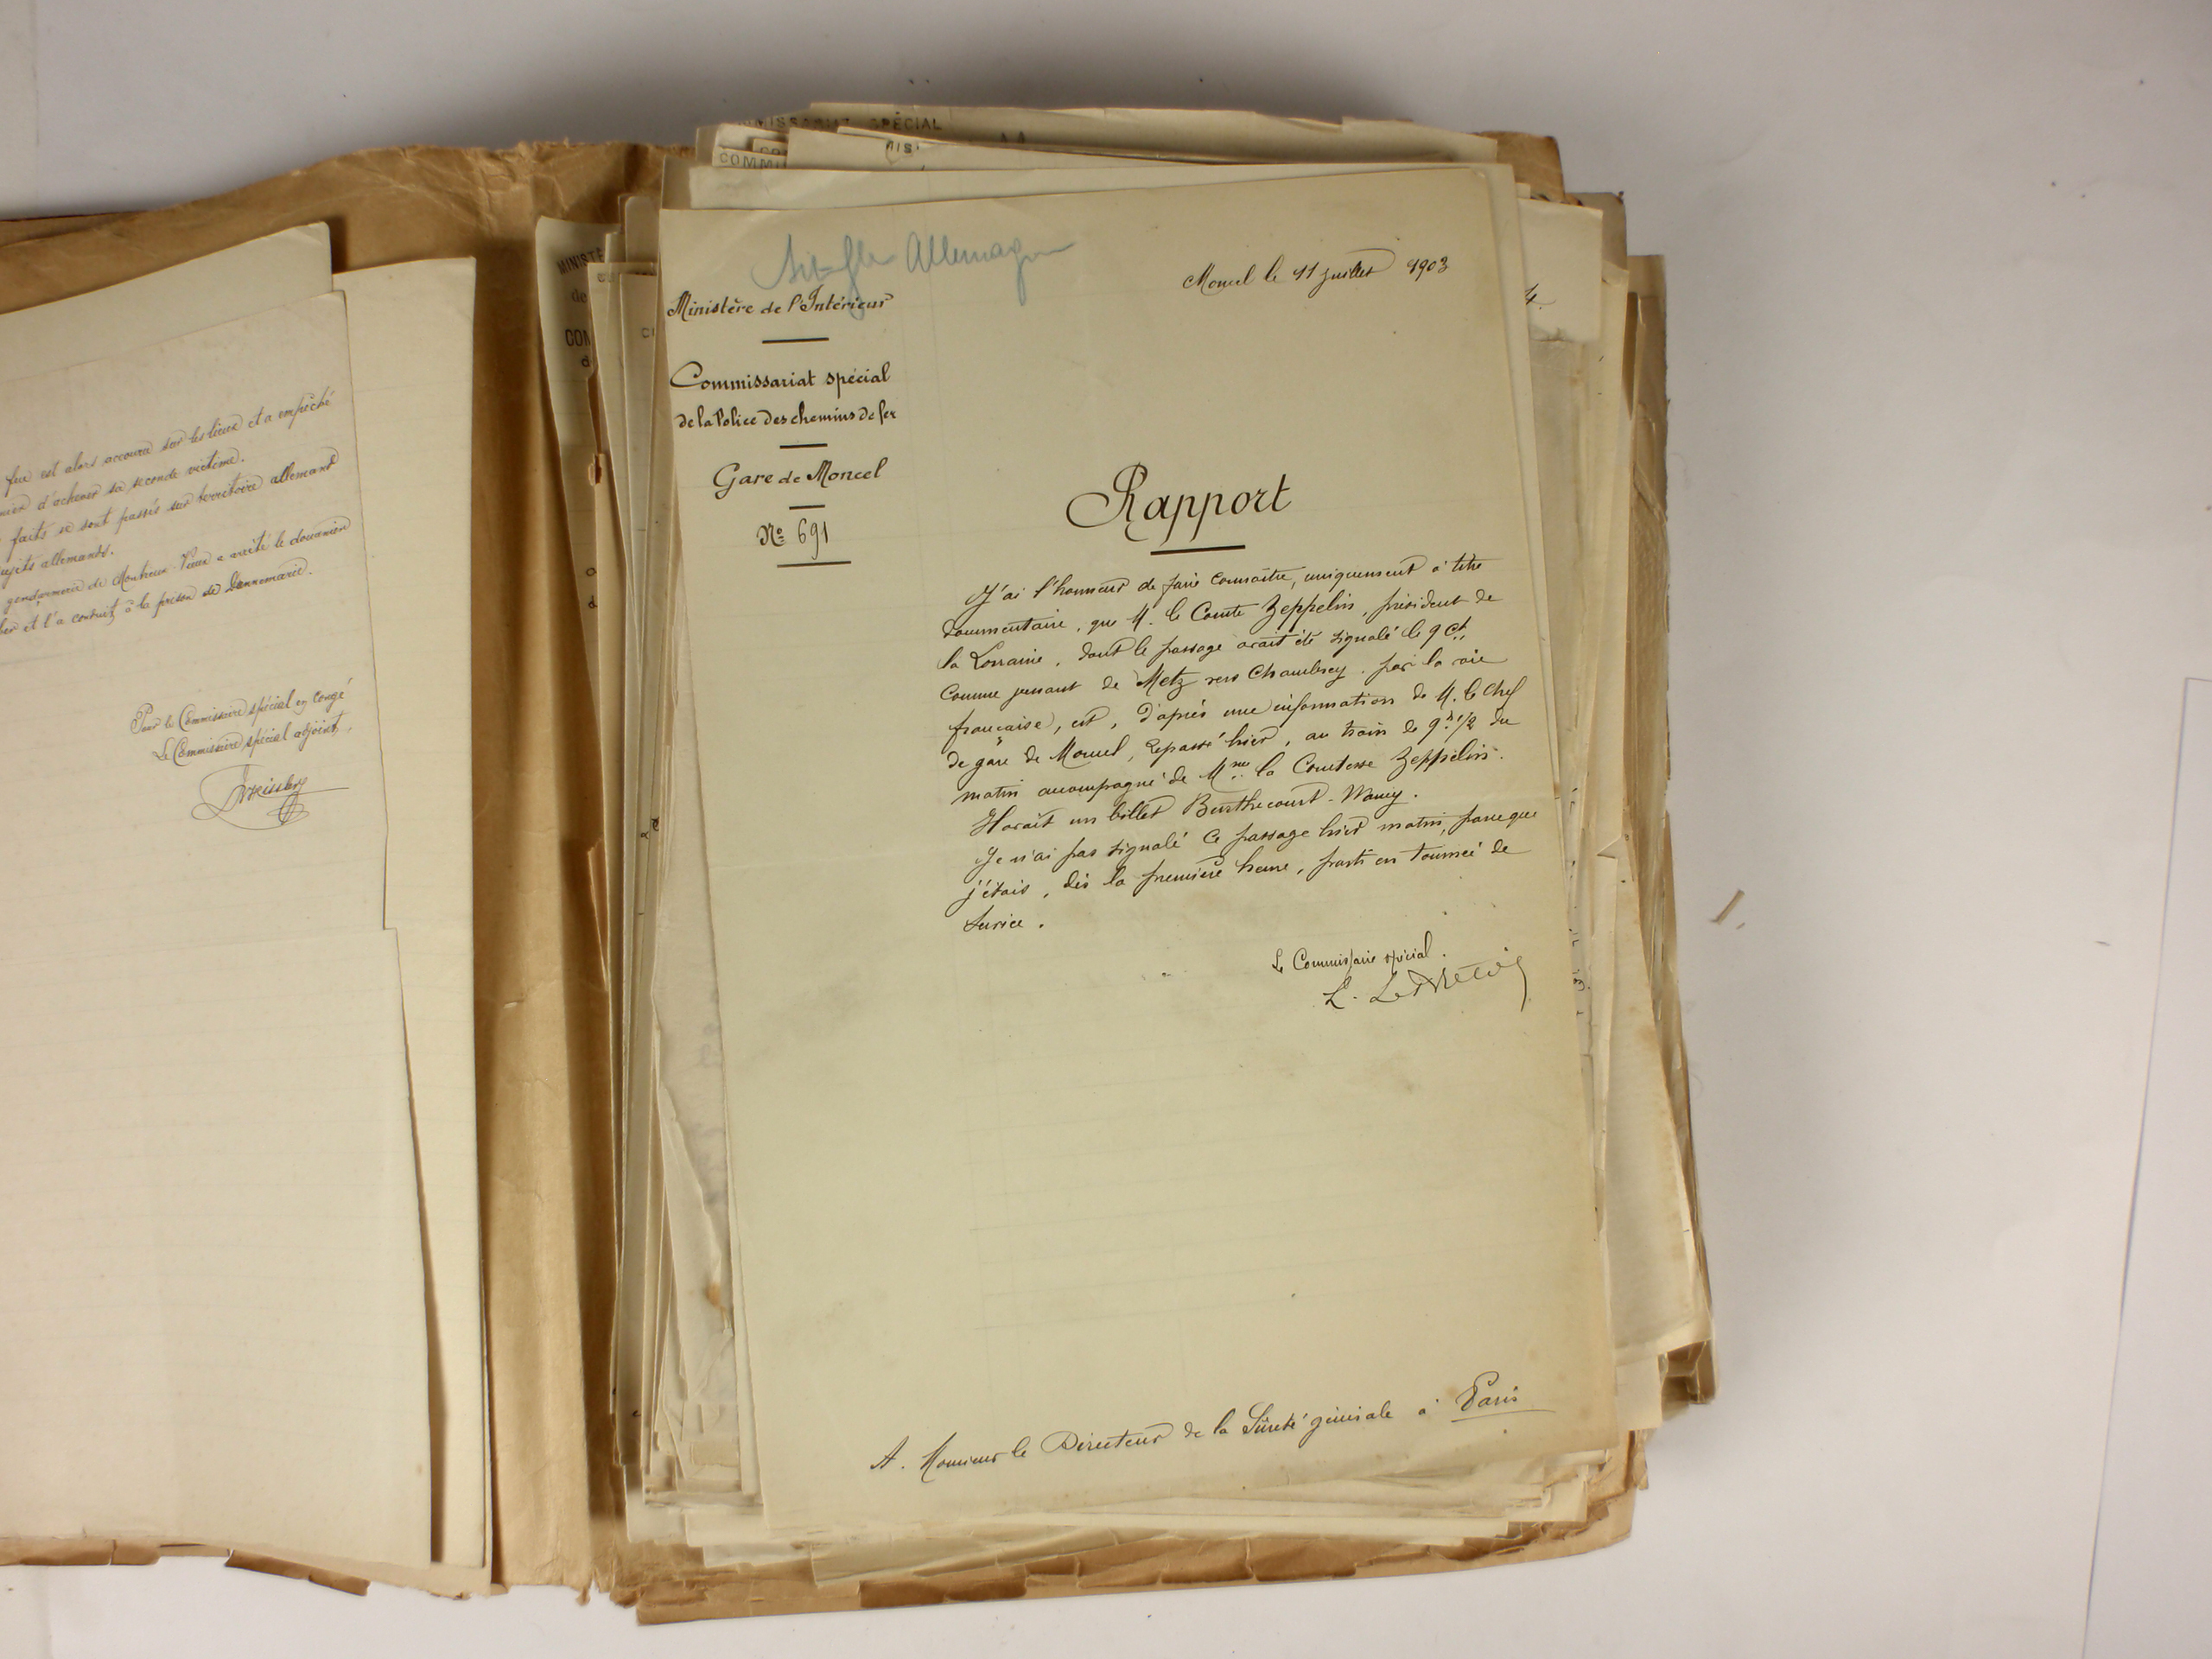 fue est alors accouru sur les lieux et a empêché
d'achever sa seconde victime.
faits se sont passés sur territoire allemand
sujets allemands.
gendarmerie de Montreux-Vieux a arrêté le douanier
et l'a conduit à la prison de Dannemarie.
Pour le Commissaire spécial en congé
Le Commissaire spécial adjoint,
MMISSARIAT SPÉCIAL
COMMI
MINISTÈ
de
CON
d
Allemagne
Moncel le 11 juillet 1903
Ministère de l'Intérieur
Commissariat spécial
de la Police des chemins de fer
Gare de Moncel
No 691
Rapport
J'ai l'honneur de faire connaître, uniquement à titre
documentaire, que M. le Comte Zeppelin, président de
la Lorraine, dont le passage avait été signalé le 9 ct,
comme venant de Metz vers Chambrey par la voie
française, est, d'après une information de M. le Chef
de gare de Moncel, repassé hier, au train de 9h 1/2 du
matin accompagné de Mme la Comtesse Zeppelin.
Il avait un billet Burthecourt-Nancy.
Je n'ai pas signalé ce passage hier matin, parce que
j'étais, dès la première heure, parti en tournée de
service.
Le Commissaire spécial.
A. Monsieur le Directeur de la Sûreté générale à Paris